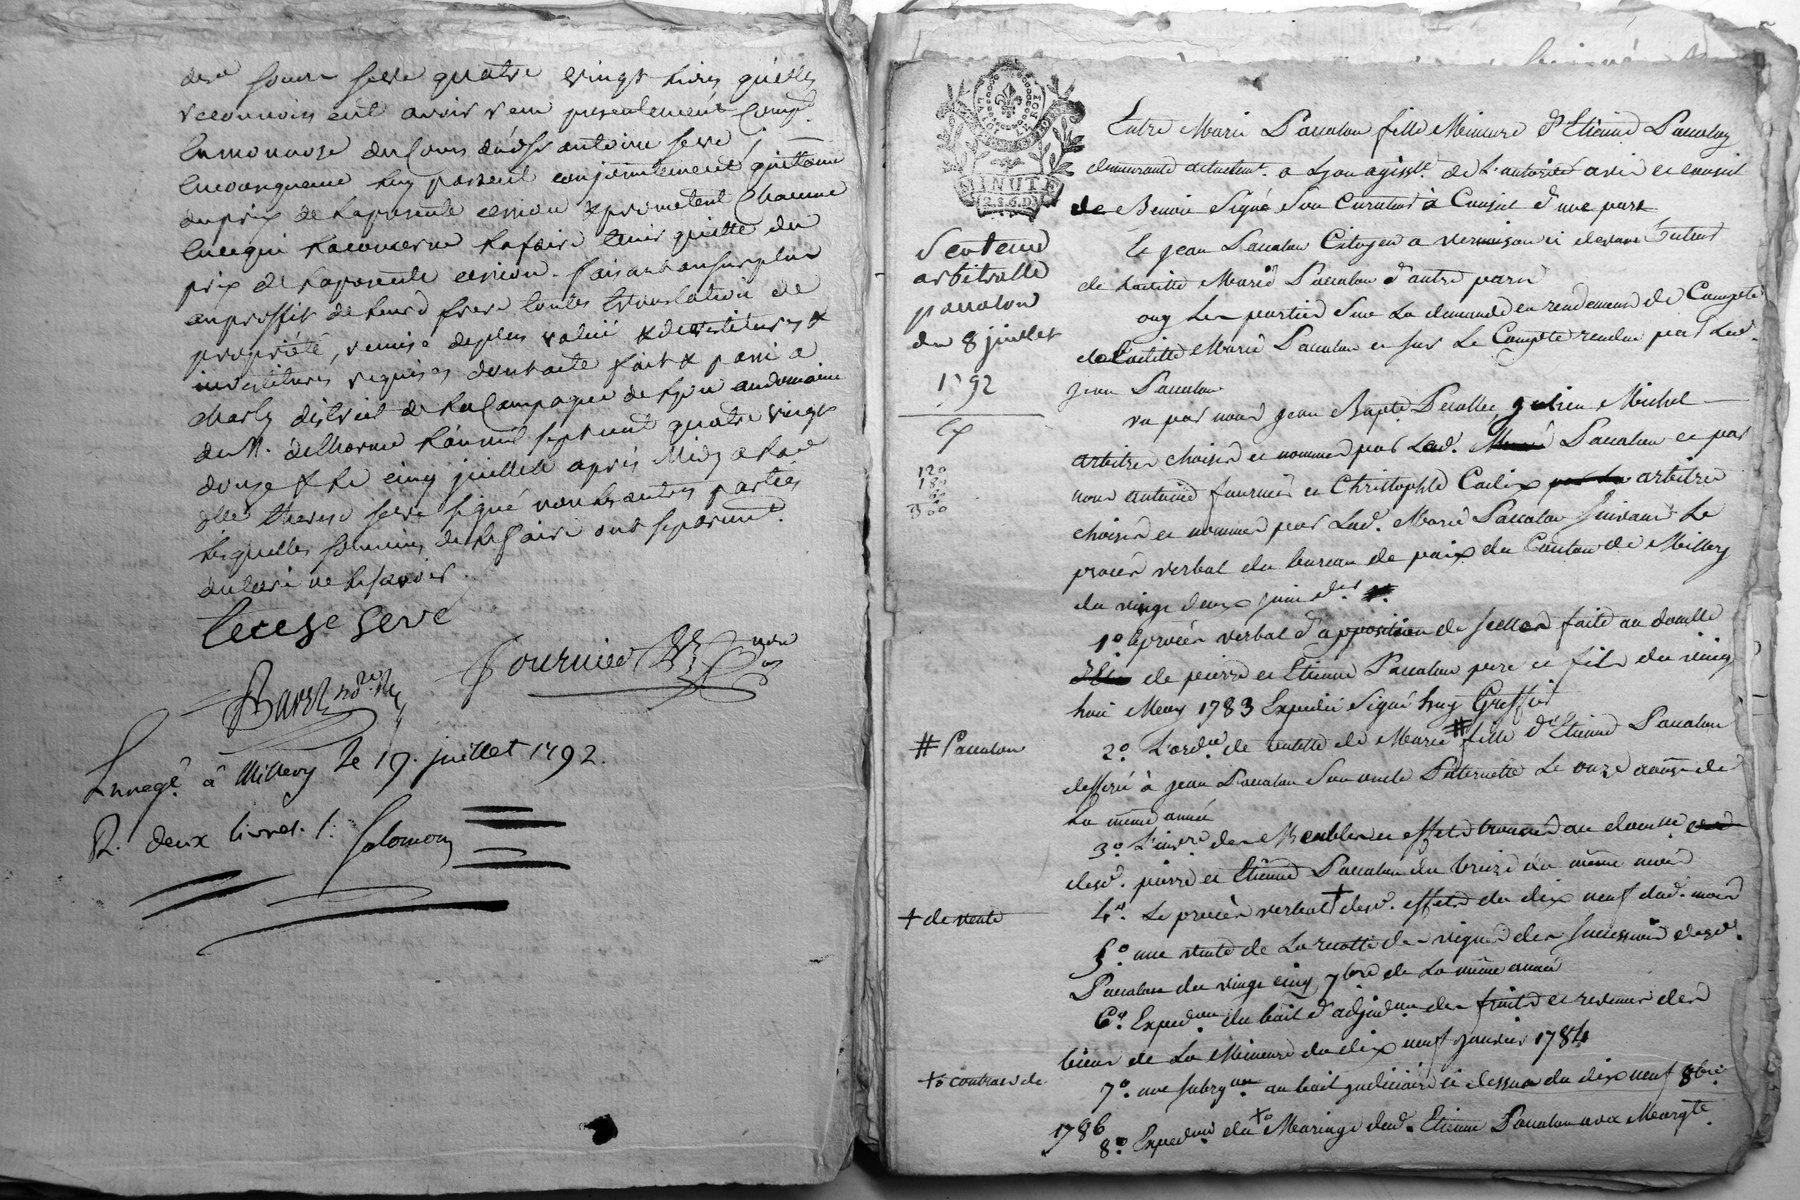 des. soeurs serve quatre vingt livres qu'elles
reconnoissent avoir reçu presentement compt.
en monnoye du cours dud. sr antoine serve
en consequence luy passent conjointement quittance
du prix de la presente cession & promettent chacune
en ce qui la concerne la faire tenir quitte du
prix de la presente cession. faisant au surplus
au proffit de leur d. frere toutes translation de
propriété, remise de plus value & devestitures &
investitures requises dont acte fait & passé a
charly district de la Campagne de Lyon au domaine
du Sr. delhorme l'an mil sept cent quatre vingt
douze & le cinq juillet après Midy a lad.
dlle. therese serve signé non les autres parties
lesquelles sommées de le faire ont separement
declaré ne le savoir.
terese serve
Fournier
Baret nore.
Enregé. à Millery le 19. juillet 1792.
R. deux livres. /. Salomon
LA LOI LE ROI
MINUTE
(2.s.6.D)
Sentence
arbitralle
passalon
du 8 juillet
1792
120
180
300
Entre Marie Passalon fille Mineure d'Etienne Passalon
demeurante actuelemt. a Lyon agisst. de l'autorité avis et conseil
de Benoit Sigué Son Curateur à Conseil d'une part
Et jean Passalon Citoyen a vernaison ci devant Tuteur
de laditte Marie Passalon d'autre part
ouy les parties Sur la demande en reddement de Compte
de laditte Marie Passalon et sur le Compte rendu par led.
jean Passalon
vu par nous jean Bapte. Decollec Michel
arbitres choisis et nommés par led. Passalon et par
nous antoine fournier et Christophle Cailix arbitres
choisis et nommés par lad. Marie Passalon Suivant le
procès verbal du bureau de paix du Canton de Millery
du vingt deux juin der.
1.º Le procès verbal d'apposition de scellés faite au domille
de pierre et Etienne Passalon pere et fils du vingt
huit Mars 1783 Expedié Signé huy Greffier
2.º L'ordce. de tutelle de Marie # fille d'Etienne Passalon
# Passalon
defferé à jean Passalon Son oncle Paternelle le onze aoust de
la même année
3.º L'invre. des Meubles et effets trouvés au domille
desd. pierre et Etienne Passalon du treize du même mois
4.º Le procès verbal + desd. effets du dix neuf dud. mois
+ de vente
5.º une vente de la recotte des vignes des succession desd.
Passalon du vingt cinq 7bre de la même année
6.º Expedon. du bail d'adjudon. des fruits et revenus des
biens de la Mineure du dix neuf janvier 1784
7.º une subrgon. au bail judiciaire ci dessus du dix neuf 8bre
1786
8.º Expedon. du +o Mariage dud. Etienne Passalon avec Margte.
+o contrat de